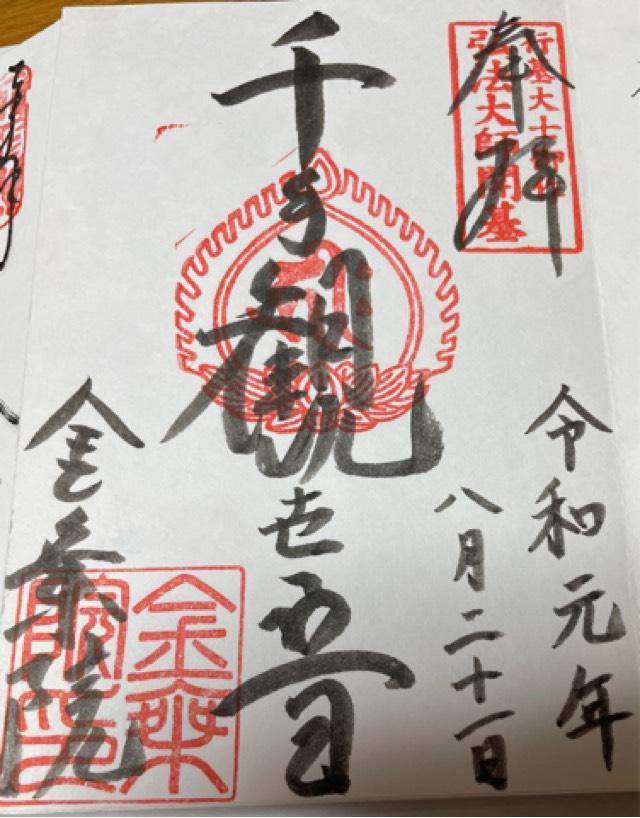 奉拝
行基大士御作
弘法大師開基
令和元年
八月二十一日
千手観世音
金乗院
金乗
院印